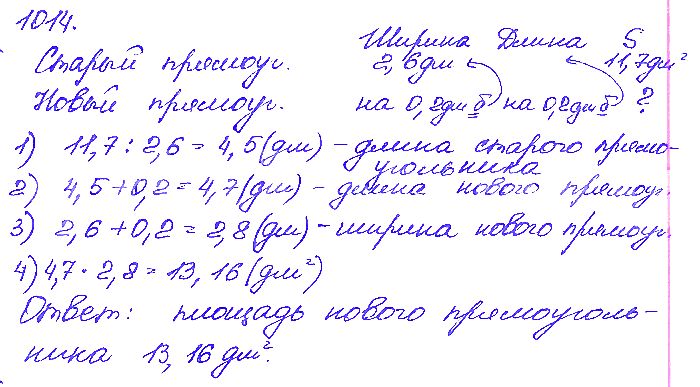 1014.
Ширина Длина S
Старый прямоуг. 2,6дм 11,7дм²
Новый прямоуг. на 0,2дм б на 0,2дм б ?
1) 11,7 : 2,6 = 4,5(дм) – длина старого прямо-
угольника
2) 4,5 + 0,2 = 4,7(дм) – длина нового прямоуг.
3) 2,6 + 0,2 = 2,8(дм) – ширина нового прямоуг.
4) 4,7 · 2,8 = 13,16 (дм²)
Ответ: площадь нового прямоуголь-
ника 13,16 дм².